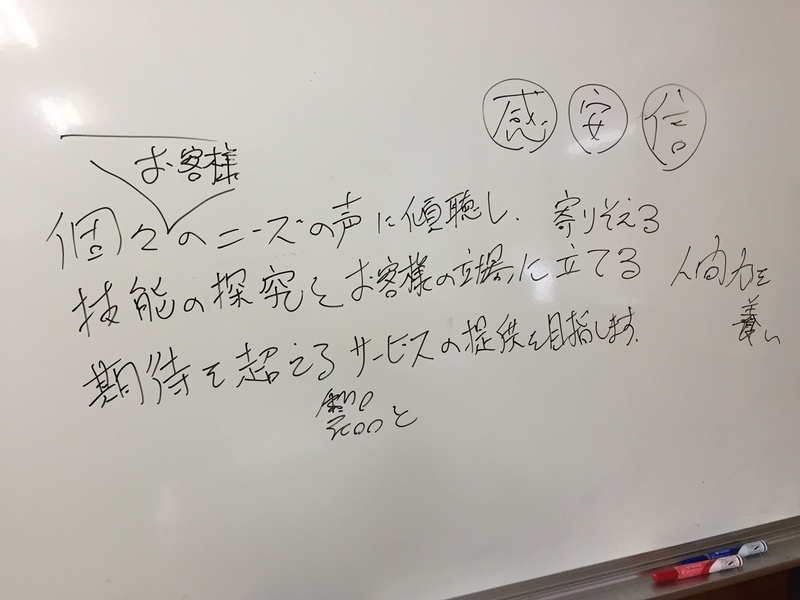 感 安 信
お客様
個々のニーズの声に傾聴し、寄りそえる
技能の探究とお客様の立場に立てる 人間力を
養い
期待を超えるサービスの提供を目指します。
と